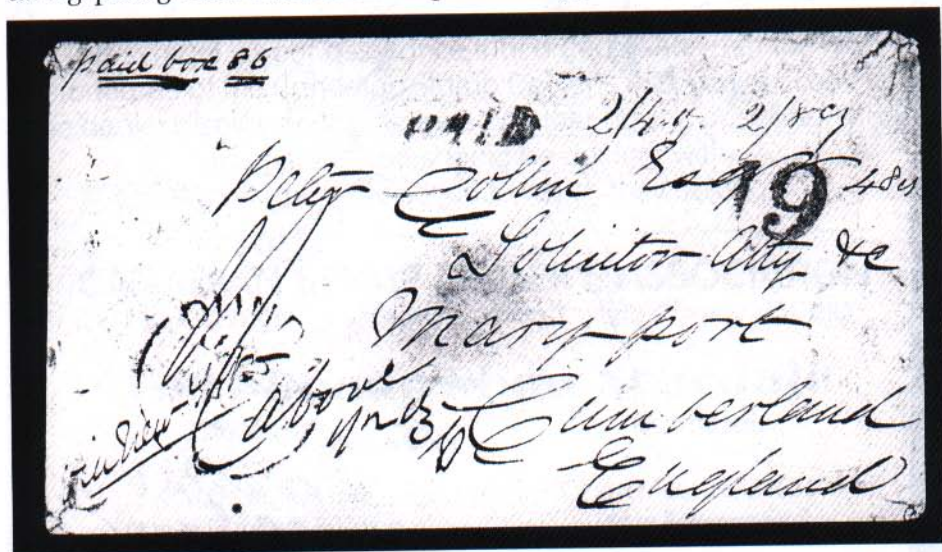 paid box 86
PAID 2/4 2/8
Peter Collin Esq 19 48
Solicitor Atty &c
Maryport
above
Cumberland
England